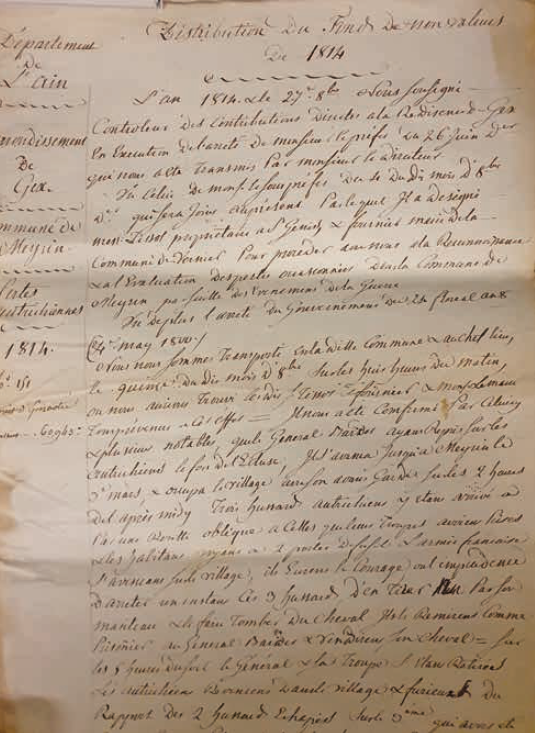 Département
De
L'ain
arrondissement
De
Gex.
Commune de
Meyrin
Pertes
autrichiennes
1814.
N°. 151
Distribution Du Fond De non valeurs
De 1814
L'an 1814. & le 27e. 8bre Nous soussigné
Controleur Des Contributions Directes a la Residence de Gex
En Execution De l'arreté De monsieur le prefet Du 26 Juin Der
qui nous a été Transmis Par monsieur le Directeur
Vu Celui De mons. le sous prefet Du Dit mois d'8bre
Dr. qui sera Joint au present Par lequel Il a Designé
mon. Tissot proprietaire a St Genix & fournier maire de la
Commune de Vernier Pour proceder avec nous a la Reconnaissance
& a l'Evaluation Des pertes occasionnées Dans la Commune de
Meyrin par suitte Des Evenemens de la Guerre
Vu De plus l'arreté Du Gouvernement Du 24 floreal an 8
(24 may 1800.)
Nous nous sommes Transporté En la ditte Commune & au Chef lieu,
le quinze Du dit mois d'8bre sur les huit heures Du matin,
ou nous avions Trouvé les dits srs Tissot & fournier & mons. le maire
Il nous a été Confirmé Par
& plusieurs notables que le General ayant Repris sur les
autrichiens le fort de l'Ecluse, Il s'avança Jusqu'a Meyrin le
1er mars, & occupa le village avec son avant Garde sur les 2 heures
De l'après midy Trois hussard autrichiens y étant arrivé
Par une Routte oblique a Celles que leurs Troupes avoient
& les habitans voyant a 2 portée De fusil L'armée francaise
S'avançant sur le village, ils Eurent le Courage ou l'imprudence
D'arreter un instant Ces 3 hussard, d'En Tirer un Par son
manteau & le faire Tomber Du Cheval Ils le Remirent Comme
Prisonier au General & Vendirent son Cheval = sur
les 5 heures Du soir le General & la Troupe S'étant Retirés
Les autrichiens Revinrent Dans le village & furieux Du
Rapport Des 2 hussard Echapés sur le 3eme qui avoit été